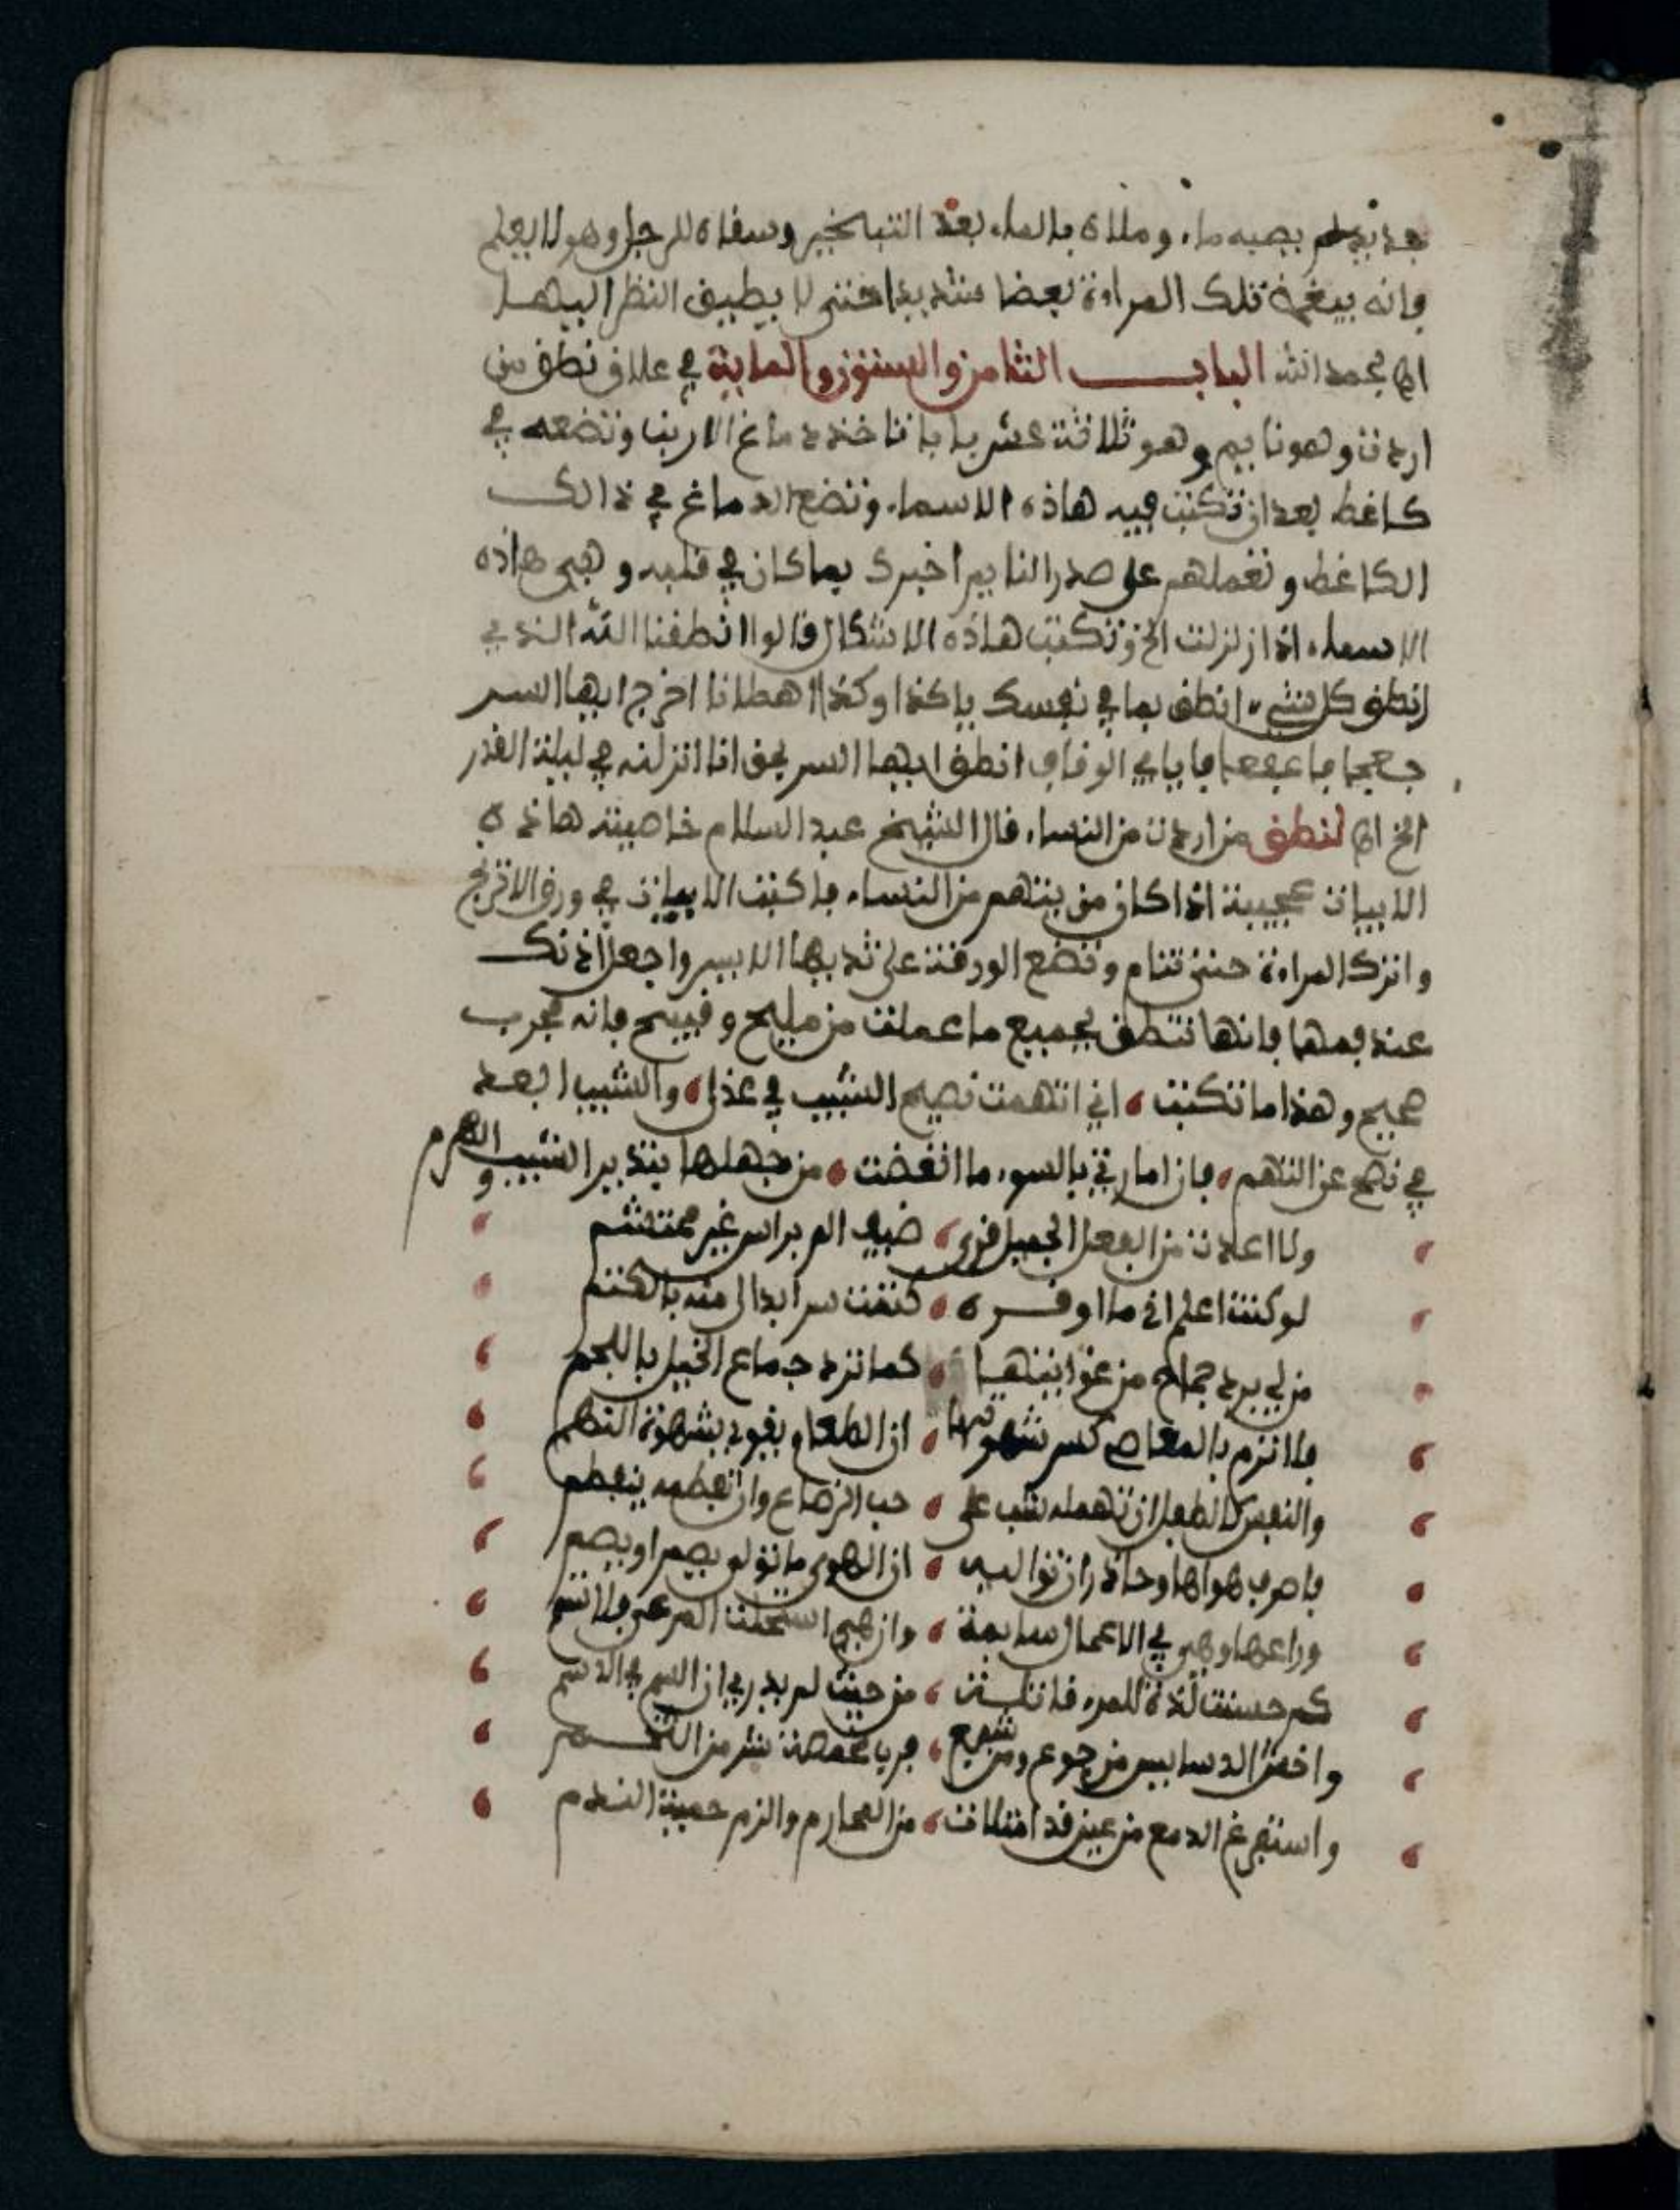 جديد لم يصبه ماء وملاه بالماء بعد التبخير وسفاه للرجل وهو لا يعلم
فانه يبغض تلك المراءة بغضا شديدا حتى لا يطيق النظر اليها
اهـ بحمد الله البـاب الثامن والستون والماية في علاق نطق من
اردت وهو نايم وهو ثلاثة عشر بابا تاخذ دماغ الارنب وتضعه في
كاغط بعد ان تكتب فيه هاذه الاسماء وتضع الدماغ في ذالك
الكاغط وتعملهم على صدر النايم اخبرك بما كان في قلبه وهي هاذه
الاسماء اذا زلزلت الخ وتكتب هاذه الاشكال قالوا انطقنا الله الذي
انطق كل شيء انطق بما في نفسك يا كذا وكذا اخرج ايها السر
انطق ايها السر بحق انا انزلنه في ليلة القدر
الخ اهـ لنطق من اردت من النساء قال الشيخ عبد السلام خاصيته هاذه
الابيات عجيبة اذا كان من يتهم من النساء فاكتب الابيات في ورق الاترنج
واترك المراءة حتى تنام وتضع الورقة على ثديها الايسر واجعل اذنك
عند فمها فانها تنطق بجميع ما عملت من مليح وقبيح فانه مجرب
صحيح وهذا ما تكتب اني اتهمت نصيح الشيب في عذل والشيب ابعد
في نصح عن التهم فان امارتي بالسوء ما اتعضت من جهلها بنذير الشيب والهرم
ولا اعدت من الفعل الجميل قرى ضيف الم براسي غير محتشم
لو كنت اعلم اني ما اوقره كتمت سرا بدا لي منه بالكتم
من لي برد جماح من غوايتها كما ترد جماع الخيل باللجم
فلا ترم بالمعاصي كسر شهوتها ان الطعام يقوي شهوة النهم
والنفس كالطفل ان تهمله شب على حب الرضاع وان تفطمه ينفطم
فاصرف هواها وحاذر ان تواليه ان الهوى ما تولى يصم او يصم
وراعها وهي في الاعمال سايمة وان هي استحلت المرعى فلا تسم
كم حسنت لذة للمرء قاتلة من حيث لم يدر ان السم في الدسم
واخش الدسايس من جوع ومن شبع فرب مخمصة شر من التخم
واستفرغ الدمع من عين قد امتلات من المحارم والزم حمية الندم